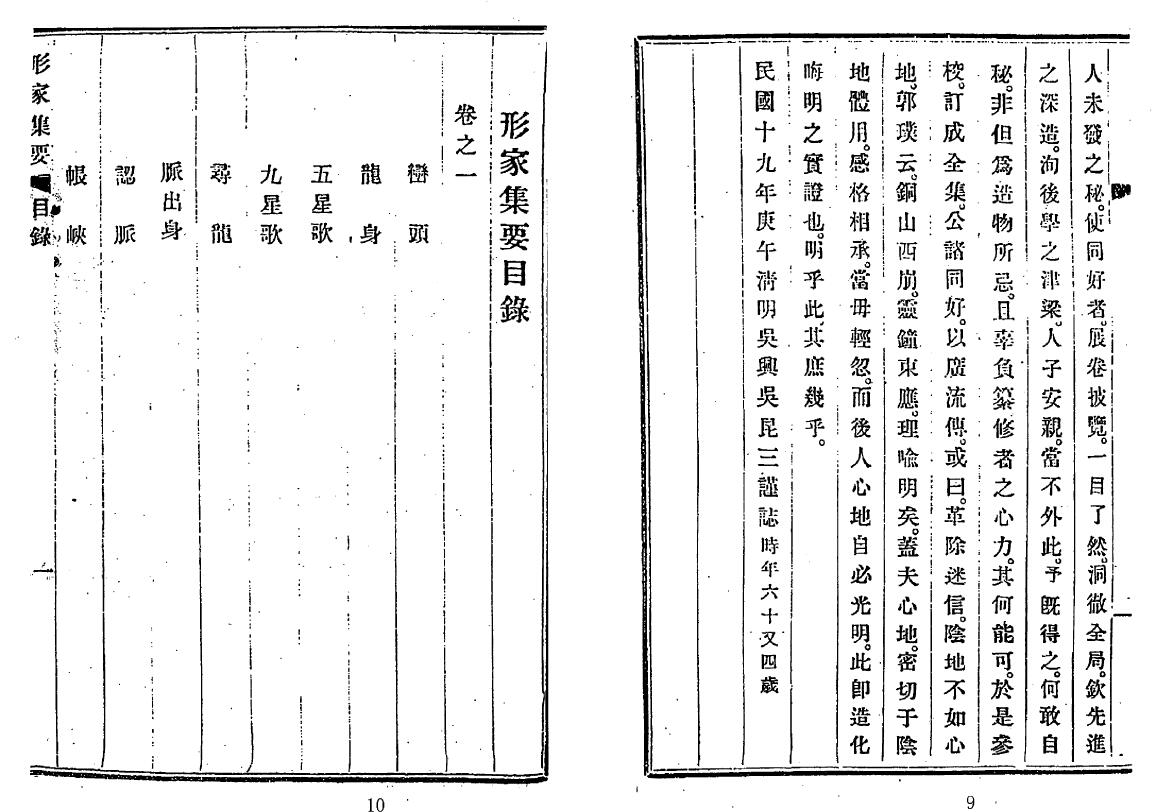 人未發之秘。使同好者。展卷披覽。一目了然。洞徹全局。欽先進
之深造。洵後學之津梁。人子安親。當不外此。予既得之。何敢自
秘。非但爲造物所忌。且辜負纂修者之心力。其何能可。於是參
校。訂成全集。公諸同好。以廣流傳。或曰。革除迷信。陰地不如心
地。郭璞云。銅山西崩。靈鐘東應。理喻明矣。蓋夫心地。密切于陰
地體用。感格相承。當毋輕忽。而後人心地自必光明。此卽造化
晦明之實證也。明乎此。其庶幾乎。
民國十九年庚午清明吳興吳昆三謹誌時年六十又四歲
一
9
形家集要目錄
卷之一
巒頭
龍身
五星歌
九星歌
尋龍
脈出身
認脈
帳峽
形家集要 目錄
一
10